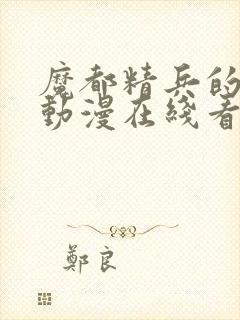 魔都精兵的
動漫在綫看
鄭良